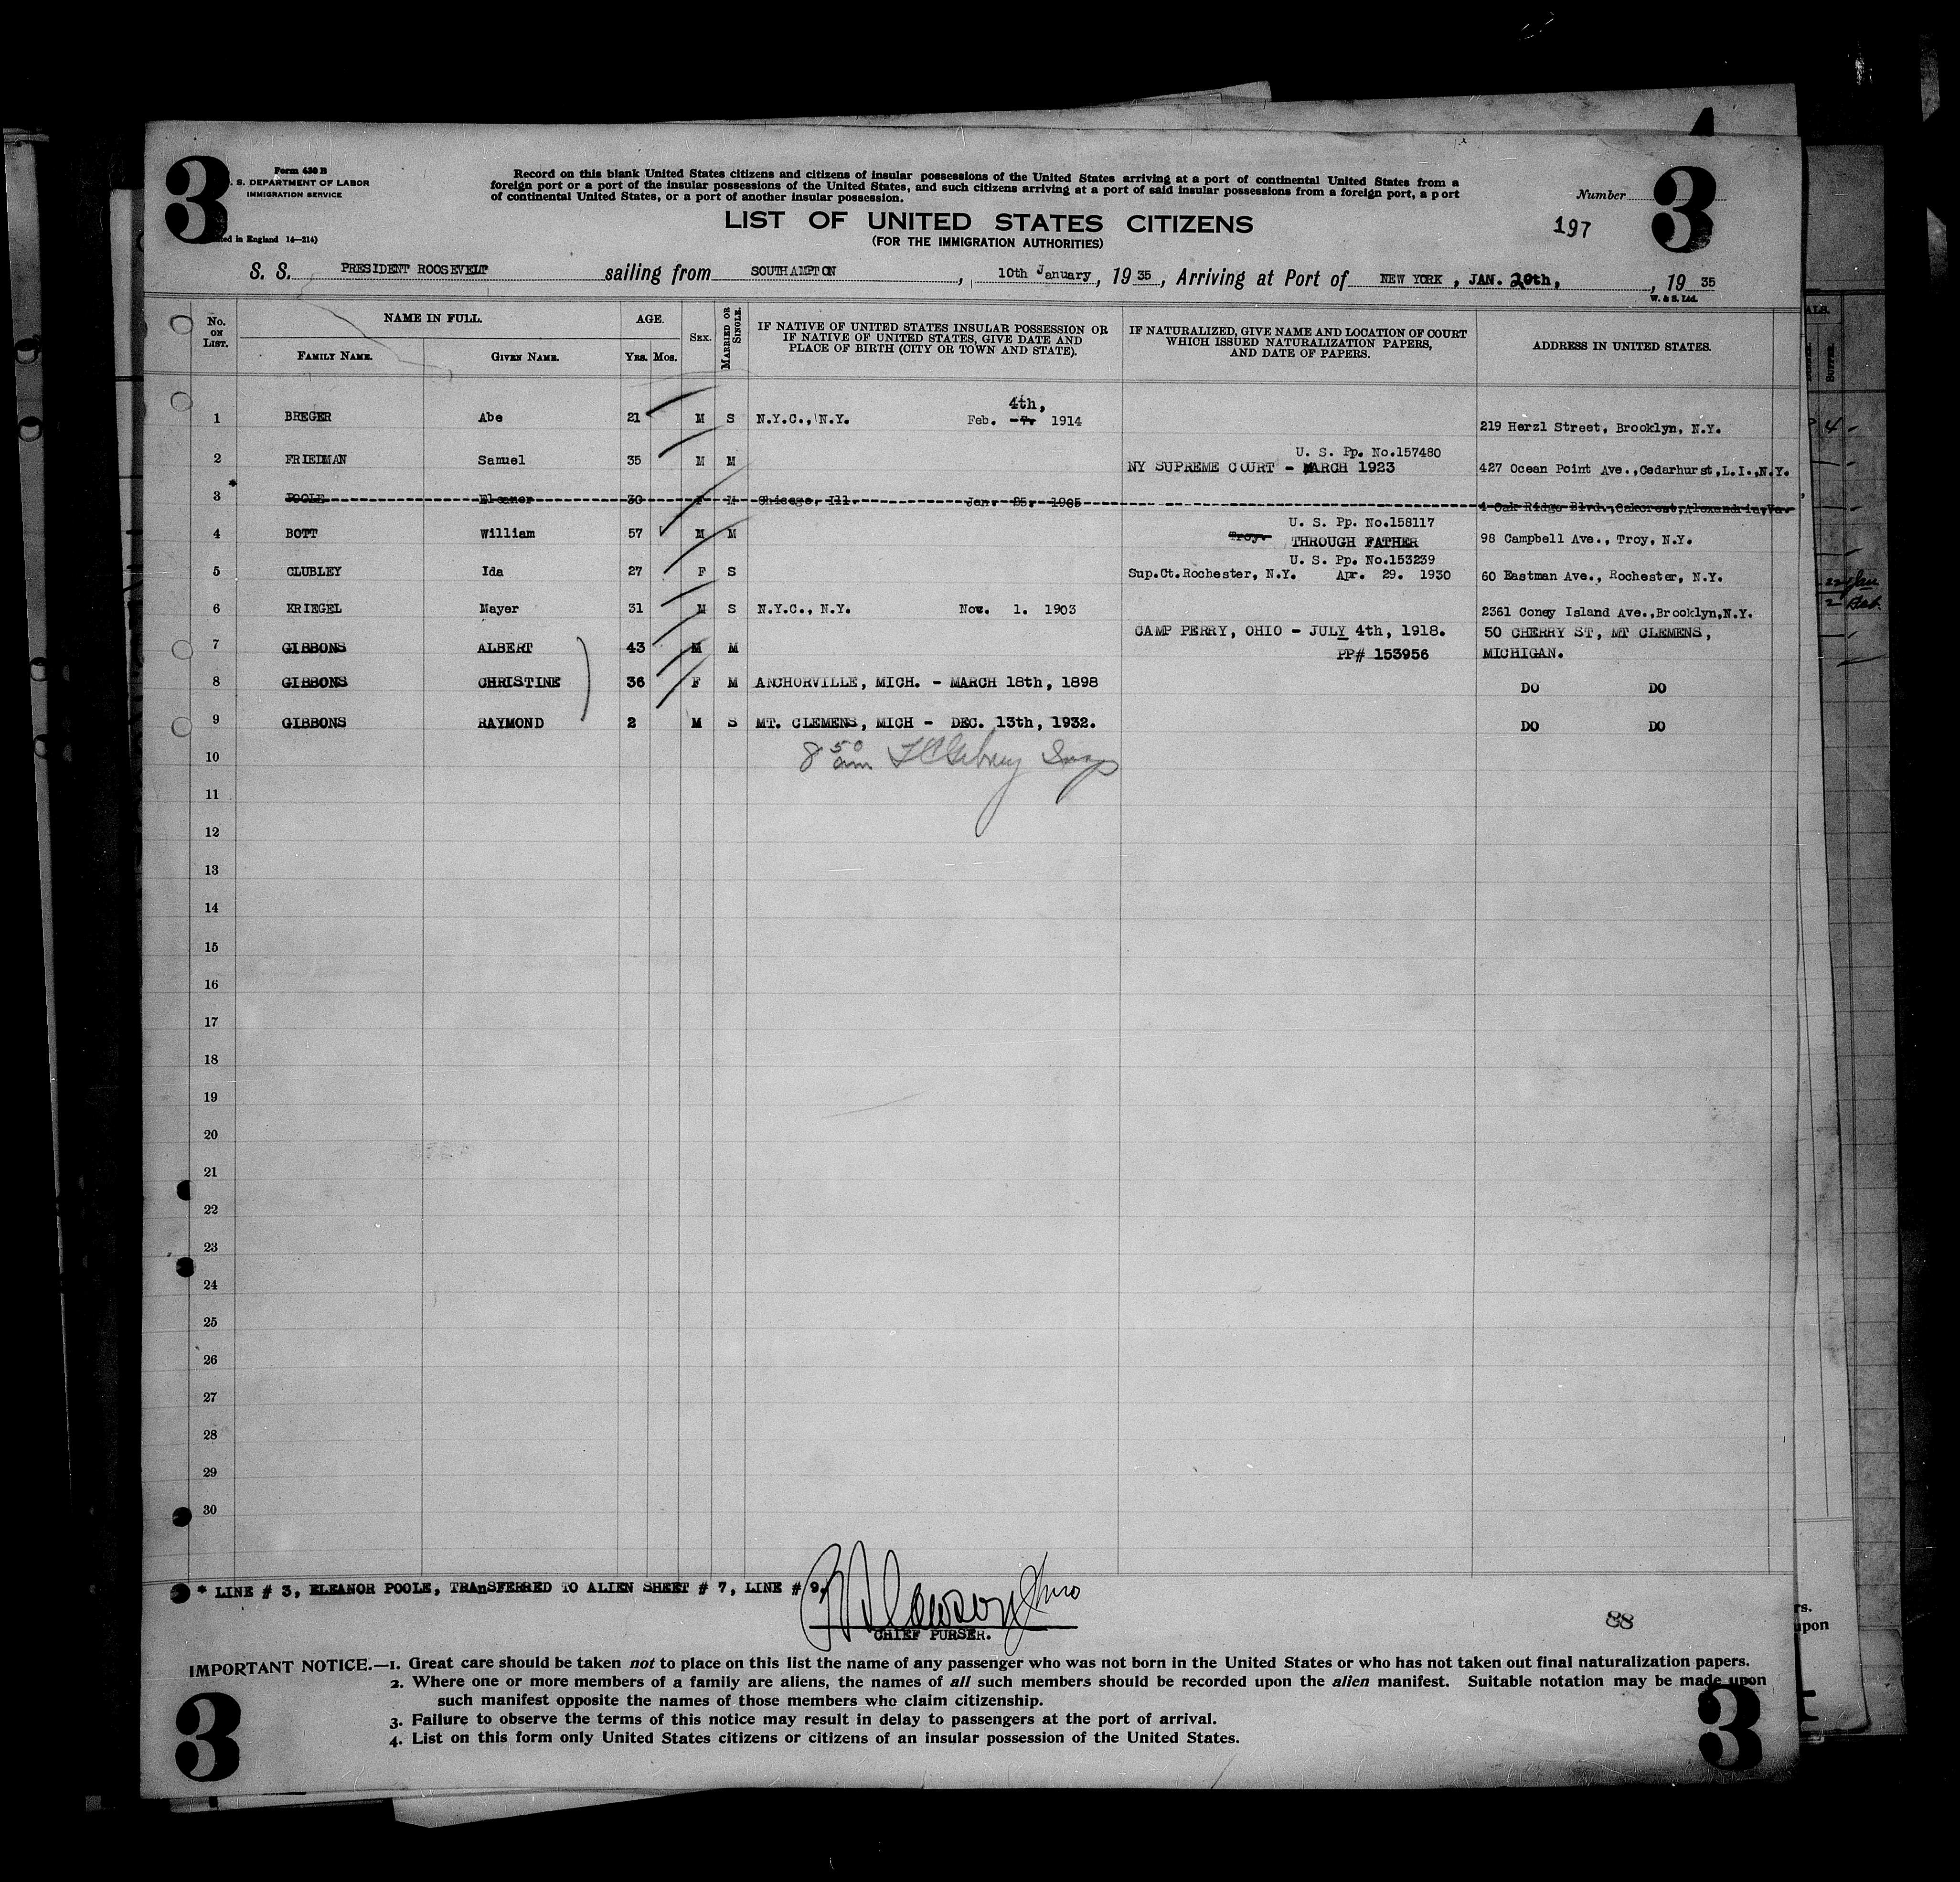 3 Form 630 B 3
S. DEPARTMENT OF LABOR
IMMIGRATION SERVICE
ed in England 14—214)
Record on this blank United States citizens and citizens of insular possessions of the United States arriving at a port of continental United States from a
foreign port or a port of the insular possessions of the United States, and such citizens arriving at a port of said insular possessions from a foreign port, a port
of continental United States, or a port of another insular possession.
Number
LIST OF UNITED STATES CITIZENS
(FOR THE IMMIGRATION AUTHORITIES)
197
S. S. PRESIDENT ROOSEVELT sailing from SOUTHAMPTON, 10th January, 19 35, Arriving at Port of NEW YORK, JAN. 20th, , 19 35
W. & S. Ltd.
No. ON LIST. NAME IN FULL. AGE. SEX. MARRIED OR SINGLE. IF NATIVE OF UNITED STATES INSULAR POSSESSION OR IF NATIVE OF UNITED STATES, GIVE DATE AND PLACE OF BIRTH (CITY OR TOWN AND STATE). IF NATURALIZED, GIVE NAME AND LOCATION OF COURT WHICH ISSUED NATURALIZATION PAPERS, AND DATE OF PAPERS. ADDRESS IN UNITED STATES.
FAMILY NAME. GIVEN NAME. Yrs. Mos.
4th,
1 BREGER Abe 21 M S N.Y.C., N.Y. Feb. -7- 1914 219 Herzl Street, Brooklyn, N.Y.
U. S. Pp. No.157480
2 FRIEDMAN Samuel 35 M M NY SUPREME COURT - MARCH 1923 427 Ocean Point Ave.,Cedarhurst,L.I.,N.Y.
3 * POOLE Eleanor 30 F M Chicago, Ill. Jan. 25. 1905 4 Oak Ridge Blvd.,Oakcrest,Alexandria,Va.
U. S. Pp. No.158117
4 BOTT William 57 M M Troy. THROUGH FATHER 98 Campbell Ave., Troy, N.Y.
U. S. Pp. No.153239
5 CLUBLEY Ida 27 F S Sup.Ct.Rochester, N.Y. Apr. 29. 1930 60 Eastman Ave., Rochester, N.Y.
6 KRIEGEL Mayer 31 M S N.Y.C., N.Y. Nov. 1. 1903 2361 Coney Island Ave.,Brooklyn,N.Y.
CAMP PERRY, OHIO - JULY 4th, 1918. 50 CHERRY ST, MT CLEMENS,
7 GIBBONS ALBERT 43 M M PP# 153956 MICHIGAN.
8 GIBBONS CHRISTINE 36 F M ANCHORVILLE, MICH. - MARCH 18th, 1898 DO DO
9 GIBBONS RAYMOND 2 M S MT. CLEMENS, MICH - DEC. 13th, 1932. DO DO
10 8 50 am Insp
11
12
13
14
15
16
17
18
19
20
21
22
23
24
25
26
27
28
29
30
* LINE # 3, ELEANOR POOLE, TRAnSFERRED TO ALIEN SHEET # 7, LINE # 9.
CHIEF PURSER.
88
IMPORTANT NOTICE.—1. Great care should be taken not to place on this list the name of any passenger who was not born in the United States or who has not taken out final naturalization papers.
2. Where one or more members of a family are aliens, the names of all such members should be recorded upon the alien manifest. Suitable notation may be made upon
such manifest opposite the names of those members who claim citizenship.
3. Failure to observe the terms of this notice may result in delay to passengers at the port of arrival.
4. List on this form only United States citizens or citizens of an insular possession of the United States.
3 3